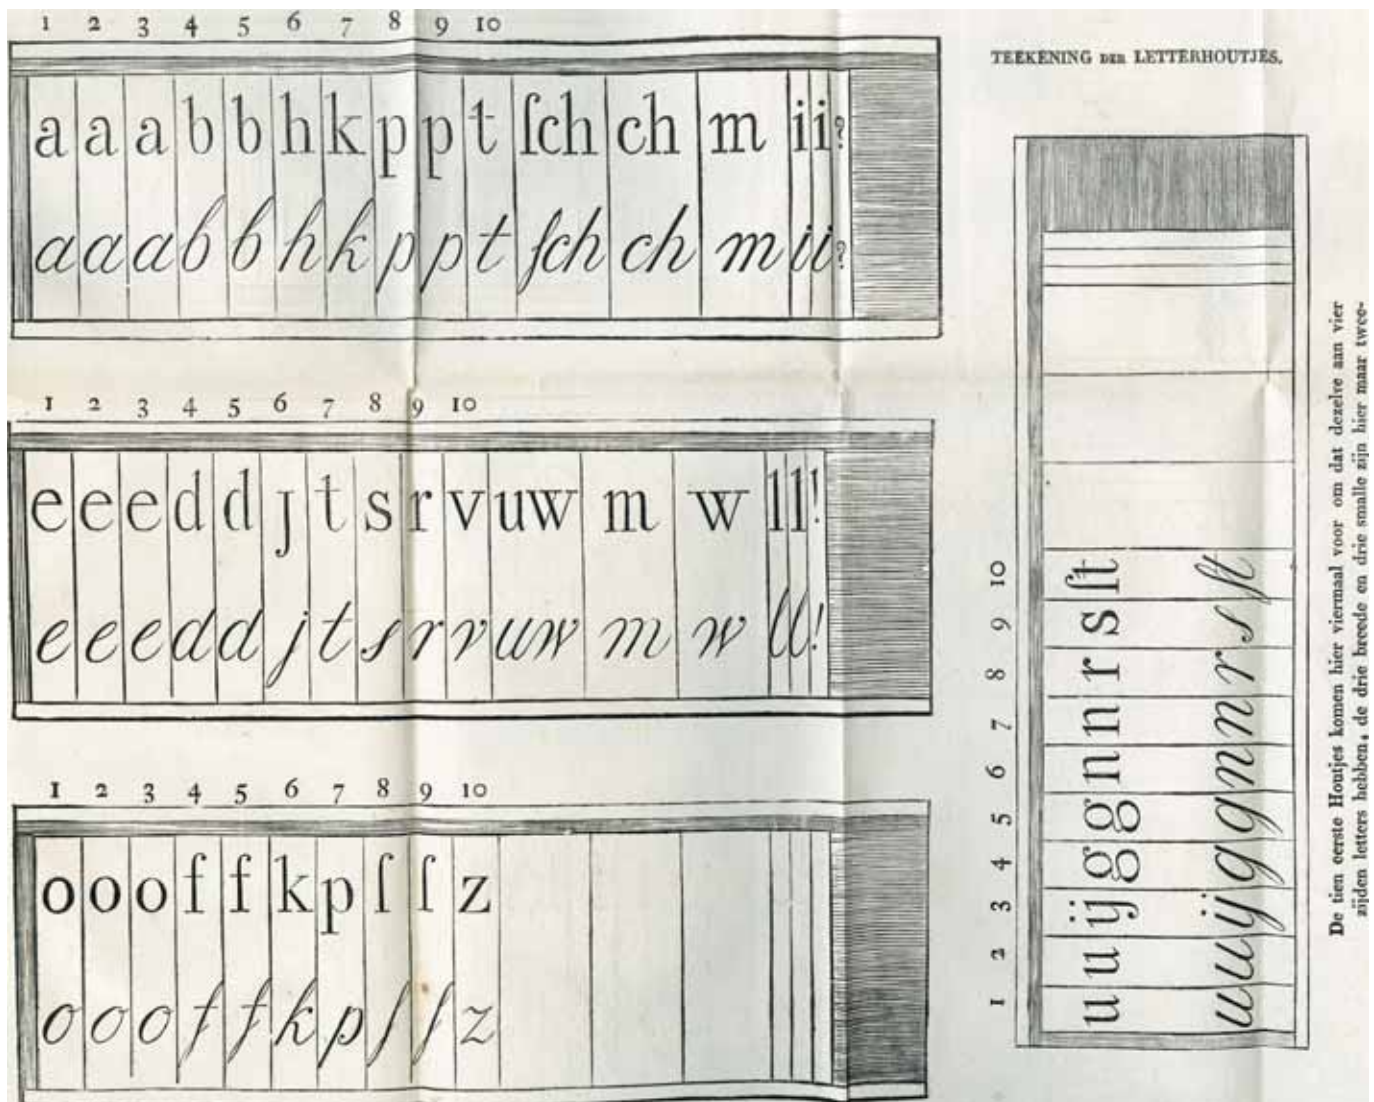 1 2 3 4 5 6 7 8 9 10
a a a b b h k p p t ſch ch m i i ?
a a a b b h k p p t ſch ch m i i ?
1 2 3 4 5 6 7 8 9 10
e e e d d j t s r v uw m w l l !
e e e d d j t s r v uw m w l l !
1 2 3 4 5 6 7 8 9 10
o o o f f k p ſ ſ z
o o o f f k p ſ ſ z
TEEKENING DER LETTERHOUTJES.
1 2 3 4 5 6 7 8 9 10
u u ij g g n n r s ſt
u u ij g g n n r s ſt
De tien eerste Houtjes komen hier viermaal voor om dat dezelve aan vier
zijden letters hebben, de drie breede en drie smalle zijn hier maar twee-